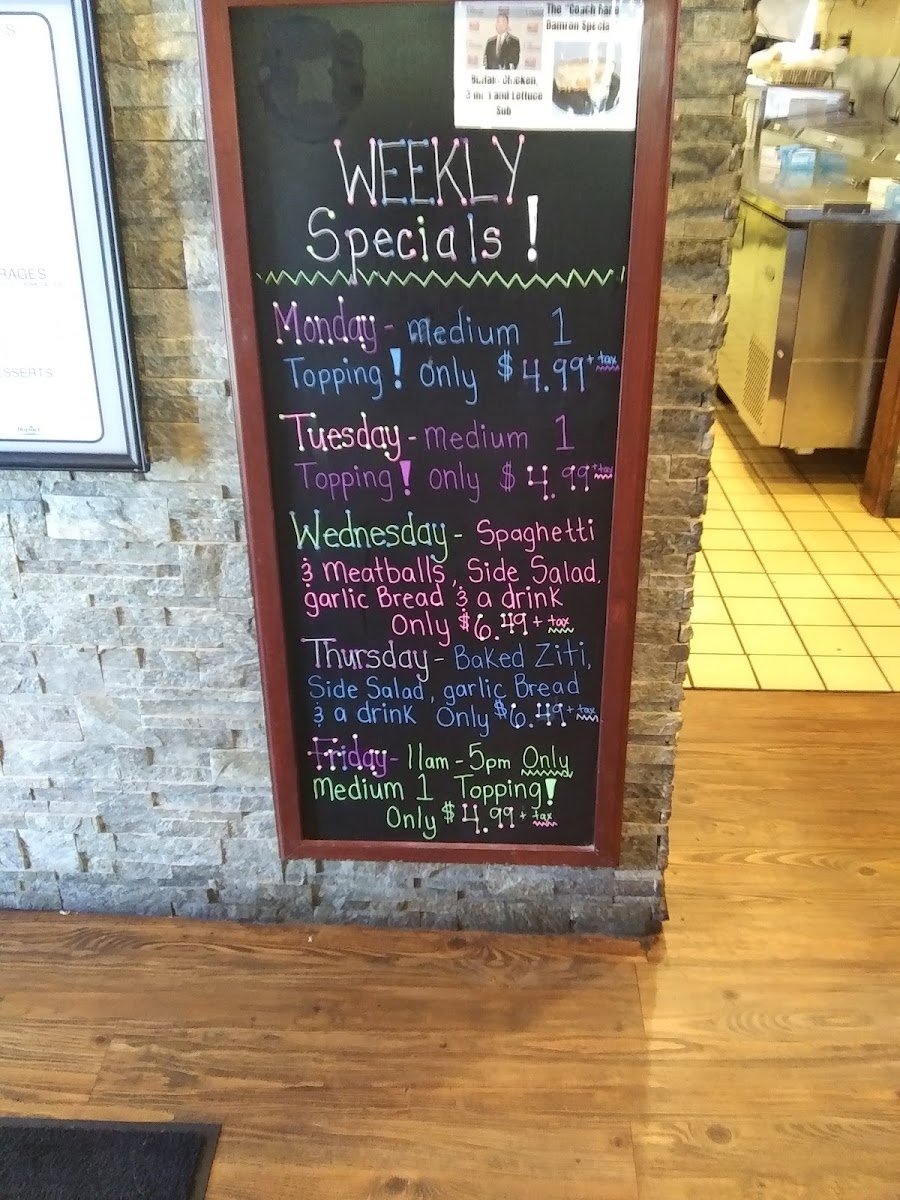 The "Coach
Damron
Chicken,
and Lettuce
Sub
WEEKLY
Specials!
Monday - medium 1
Topping! only $4.99 + tax
Tuesday - medium 1
Topping! only $4.99 + tax
Wednesday - Spaghetti
& meatballs, Side Salad,
garlic Bread & a drink
Only $6.49 + tax
Thursday - Baked Ziti,
Side Salad, garlic Bread
& a drink Only $6.49 + tax
Friday - 11am - 5pm Only
medium 1 Topping!
Only $4.99 + tax
RAGES
DESSERTS